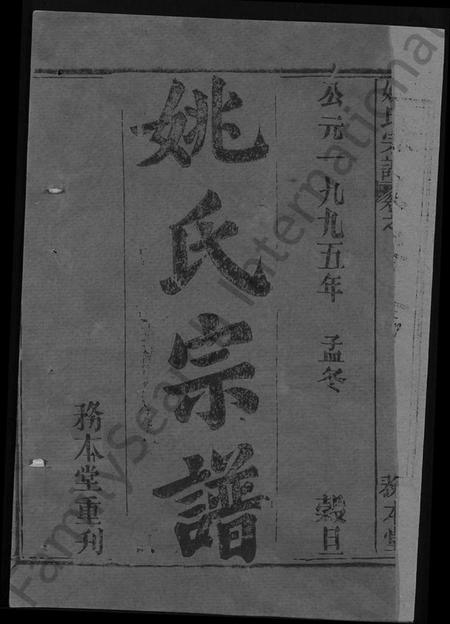 姚氏宗譜卷之
務本堂
公元一九九五年 孟冬 榖旦
姚氏宗譜
務本堂重刊
FamilySearch International